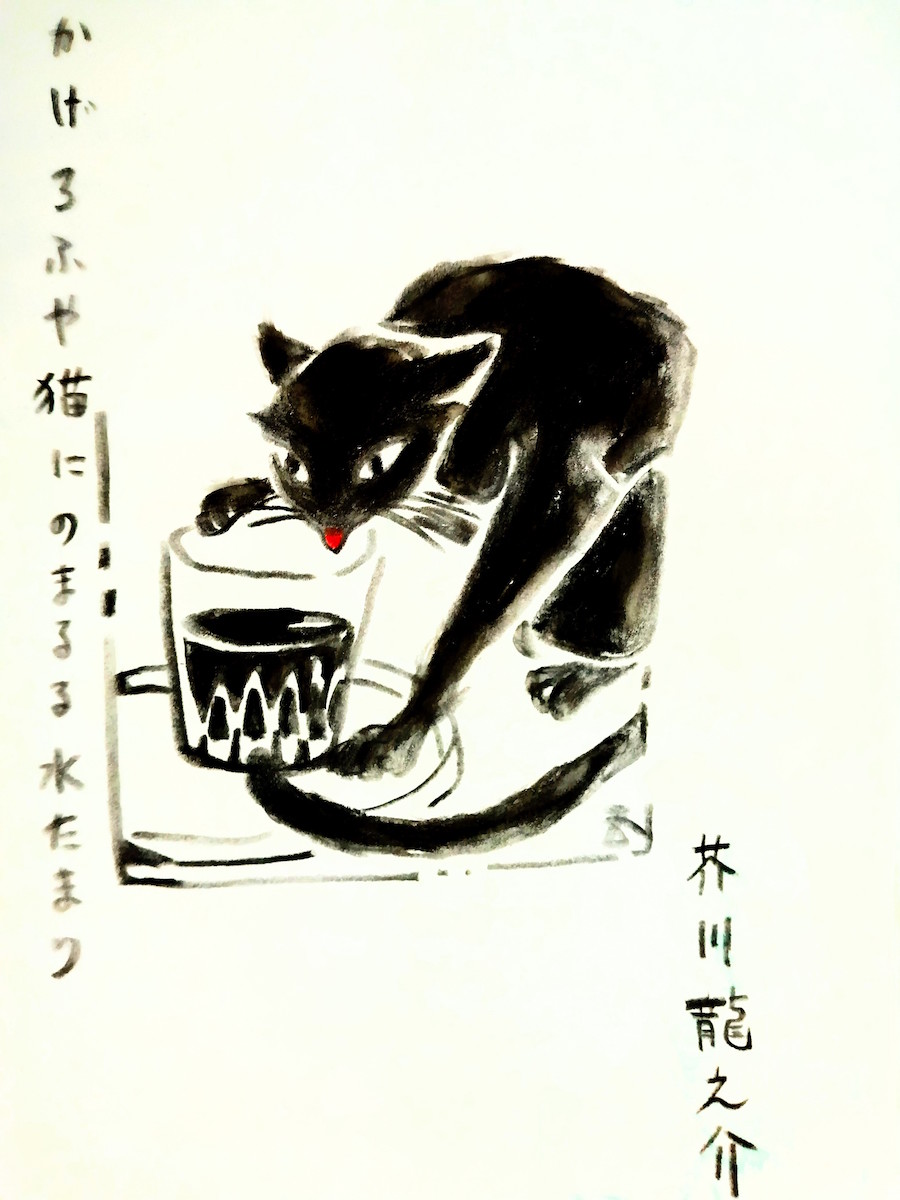 かげろふや猫にのまるる水たまり
芥川龍之介